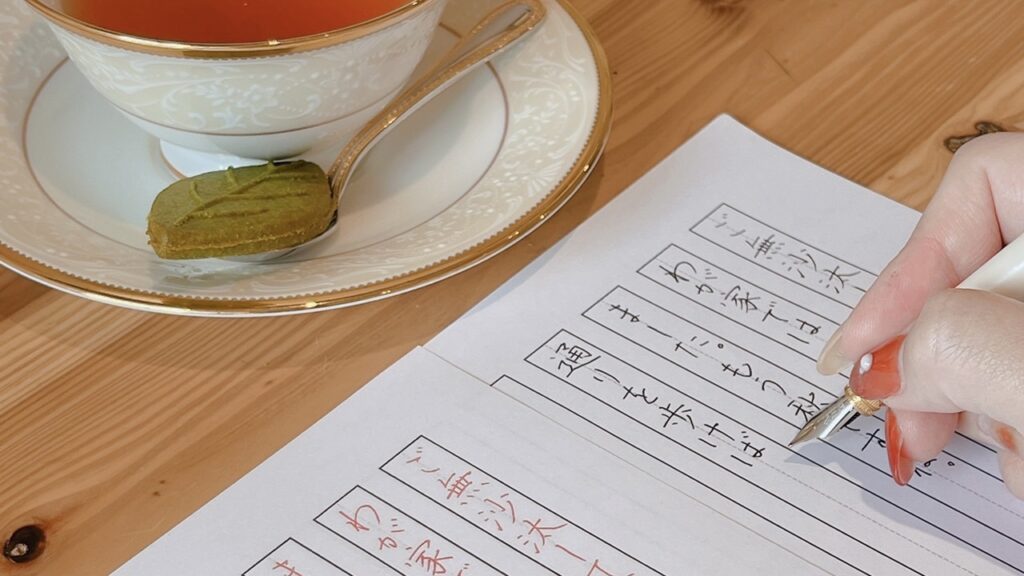 ご無沙汰
わが家では
ました。もう秋すね。
通りを歩けば
ご無沙汰し
わが家で
ま